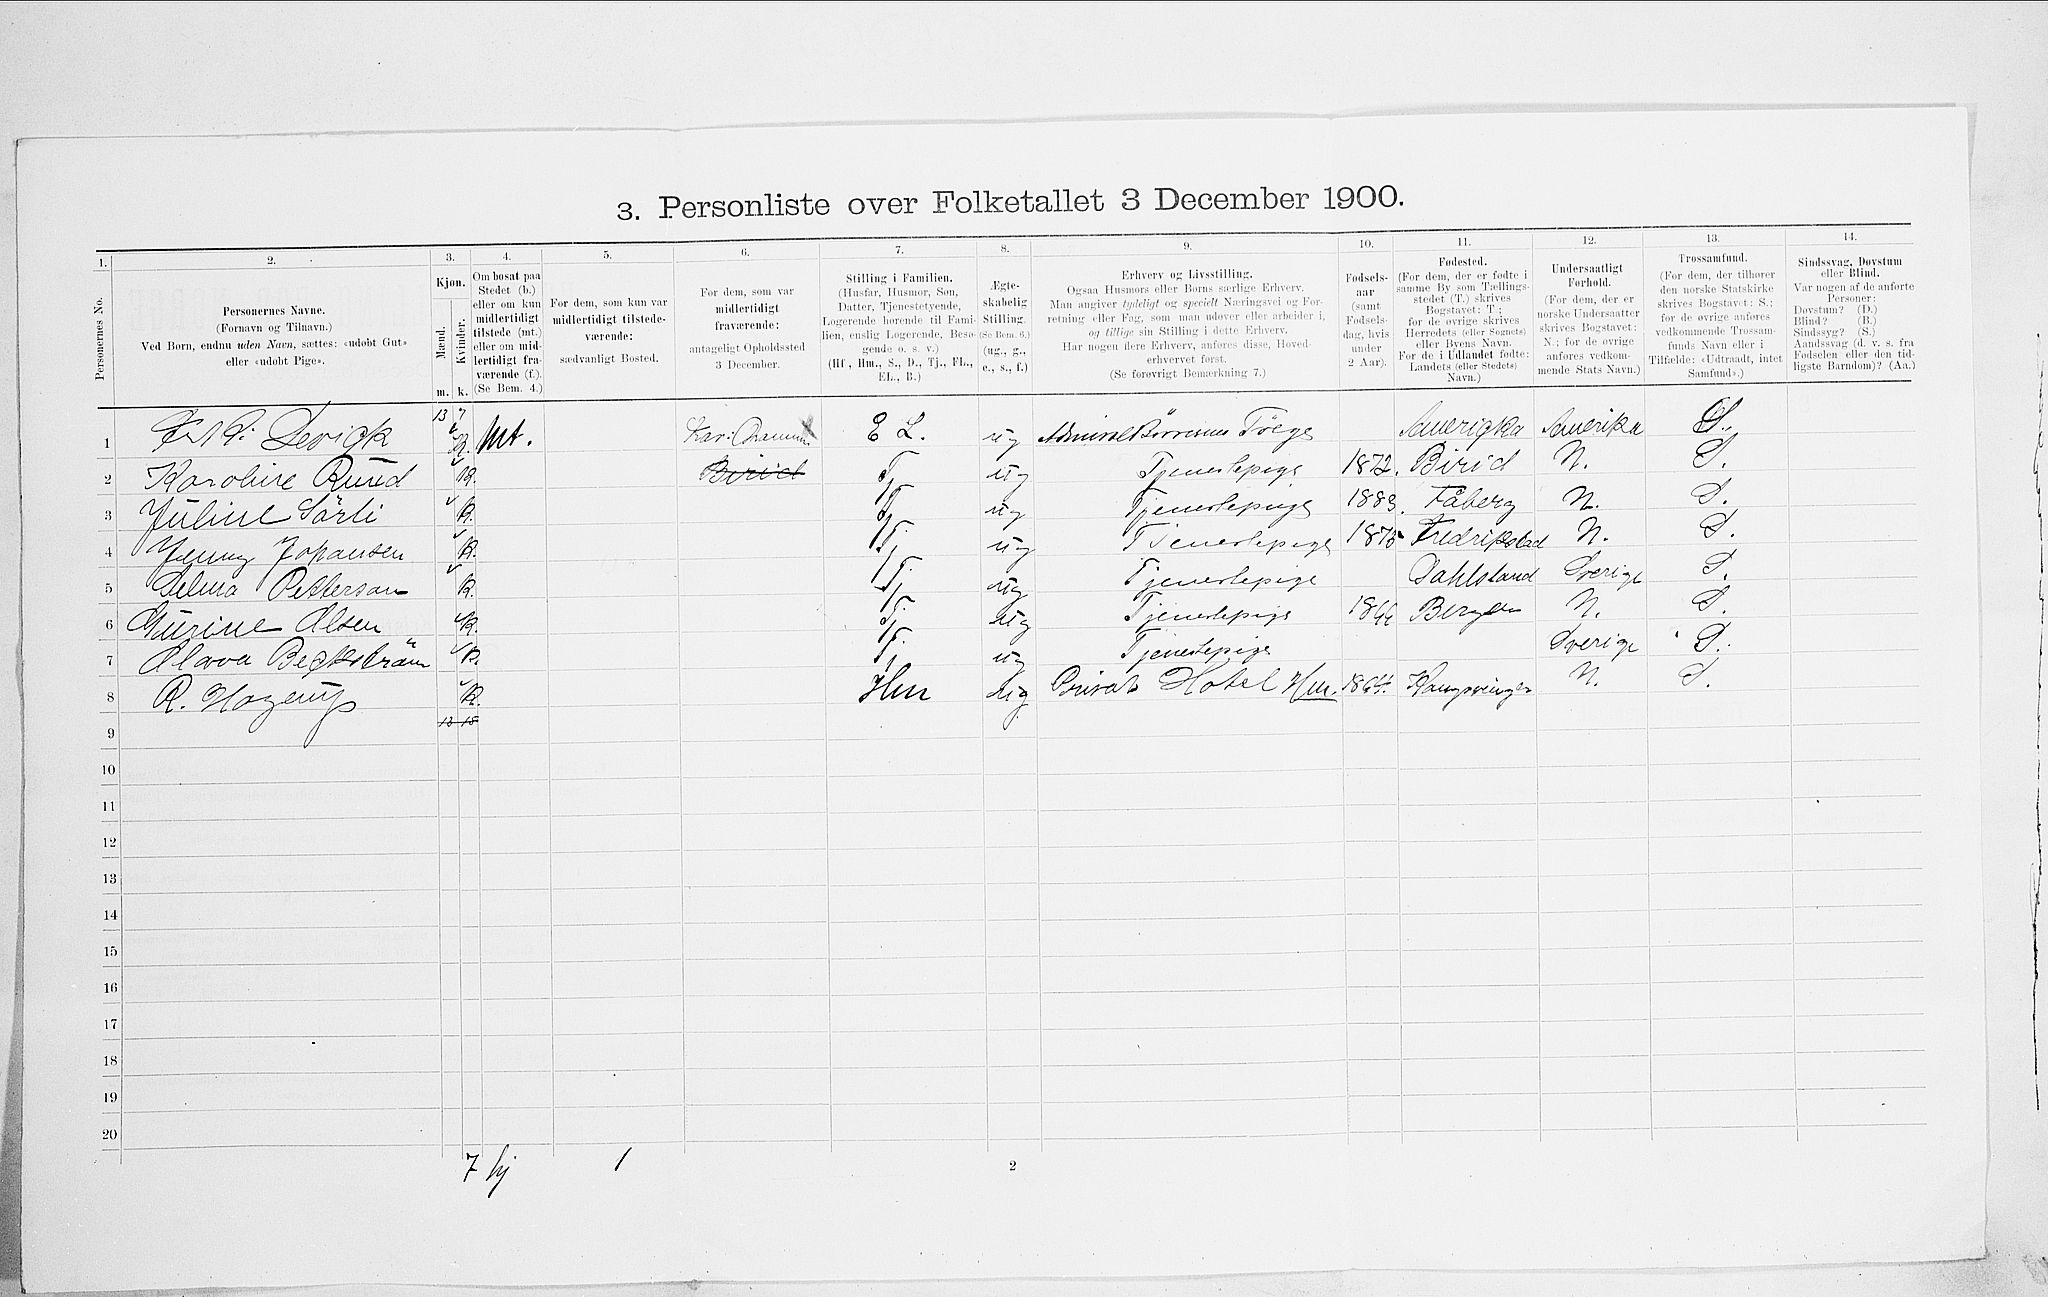 3. Personliste over Folketallet 3 December 1900.
1. 2. 3. 4. 5. 6. 7. 8. 9. 10. 11. 12. 13. 14.
Personernes No.
Personernes Navne.
(Fornavn og Tilnavn.)
Ved Børn, endnu uden Navn, sættes: «udøbt Gut»
eller «udøbt Pige».
Kjøn.
Mænd. Kvinder.
m. k.
Om bosat paa
Stedet (b.)
eller om kun
midlertidigt
tilstede (mt.)
eller om mid-
lertidigt fra-
værende (f.).
(Se Bem. 4.)
For dem, som kun var
midlertidigt tilstede-
værende:
sædvanligt Bosted.
For dem, som var
midlertidigt
fraværende:
antageligt Opholdssted
3 December.
Stilling i Familien.
(Husfar, Husmor, Søn,
Datter, Tjenestetyende,
Logerende hørende til Fami-
lien, enslig Logerende, Besø-
gende o. s. v.)
(Hf, Hm., S., D., Tj., FL.,
EL., B.)
Ægte-
skabelig
Stilling.
(Se Bem. 6.)
(ug., g.,
e., s., f.)
Erhverv og Livsstilling.
Ogsaa Husmors eller Børns særlige Erhverv.
Man angiver tydeligt og specielt Næringsvei og For-
retning eller Fag, som man udøver eller arbeider i,
og tillige sin Stilling i dette Erhverv.
Har nogen flere Erhverv, anføres disse, Hoved-
erhvervet først.
(Se forøvrigt Bemærkning 7.)
Fødsels-
aar
(samt
Fødsels-
dag, hvis
under
2 Aar).
Fødested.
(For dem, der er fødte i
samme By som Tællings-
stedet (T.) skrives
Bogstavet: T.;
for de øvrige skrives
Herredets (eller Sognets)
eller Byens Navn.
For de i Udlandet fødte:
Landets (eller Stedets)
Navn.)
Undersaatligt
Forhold.
(For dem, der er
norske Undersaatter
skrives Bogstavet:
N.; for de øvrige
anføres vedkom-
mende Stats Navn.)
Trossamfund.
(For dem, der tilhører
den norske Statskirke
skrives Bogstavet: S.;
for de øvrige anføres
vedkommende Trossam-
funds Navn eller i
Tilfælde: «Udtraadt, intet
Samfund».)
Sindssvag, Døvstum
eller Blind.
Var nogen af de anførte
Personer:
Døvstum? (D.)
Blind? (B.)
Sindssyg? (S.)
Aandssvag (d. v. s. fra
Fødselen eller den tid-
ligste Barndom)? (Aa.)
13 7
1 K. mt. E L. ug Amerigka Amerika S.
2 Karoline Ruud K. Birid Tj. ug Tjenestepige 1872. Birid N. S.
3 Juline Sörli K. Tj. ug Tjenestepige 1883. Fåberg N. S.
4 Jenny Johansen K. Tj. ug Tjenestepige 1875 Fredrikstad N. S.
5 Selma Petterson K. Tj. ug Tjenestepige Dahlsland Sverige S.
6 Gurine Olsen K. Tj. ug Tjenestepige Bergen N. S.
7 Beckström K. Tj. ug Tjenestepige Sverige S.
8 R. Hagerup K. Hm ug Privat Hotel Hm. 1864. Kongsvinger N. S.
13 15
9
10
11
12
13
14
15
16
17
18
19
20
7 hj 1
2